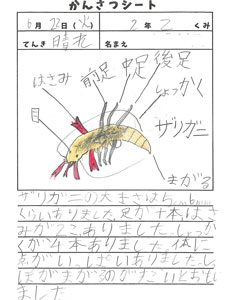 かんさつシート
6月22日(火) 2年2くみ
てんき 晴れ 名まえ
はさみ 前足 中足 後足
しょっかく
ザリガニ
まがる
ザリガニの大きさは
くらいありました足が十本はさ
みが2こありました。しょっか
くが4本ありました。体に
がいっぱいありました。し
がまがるのが
ました